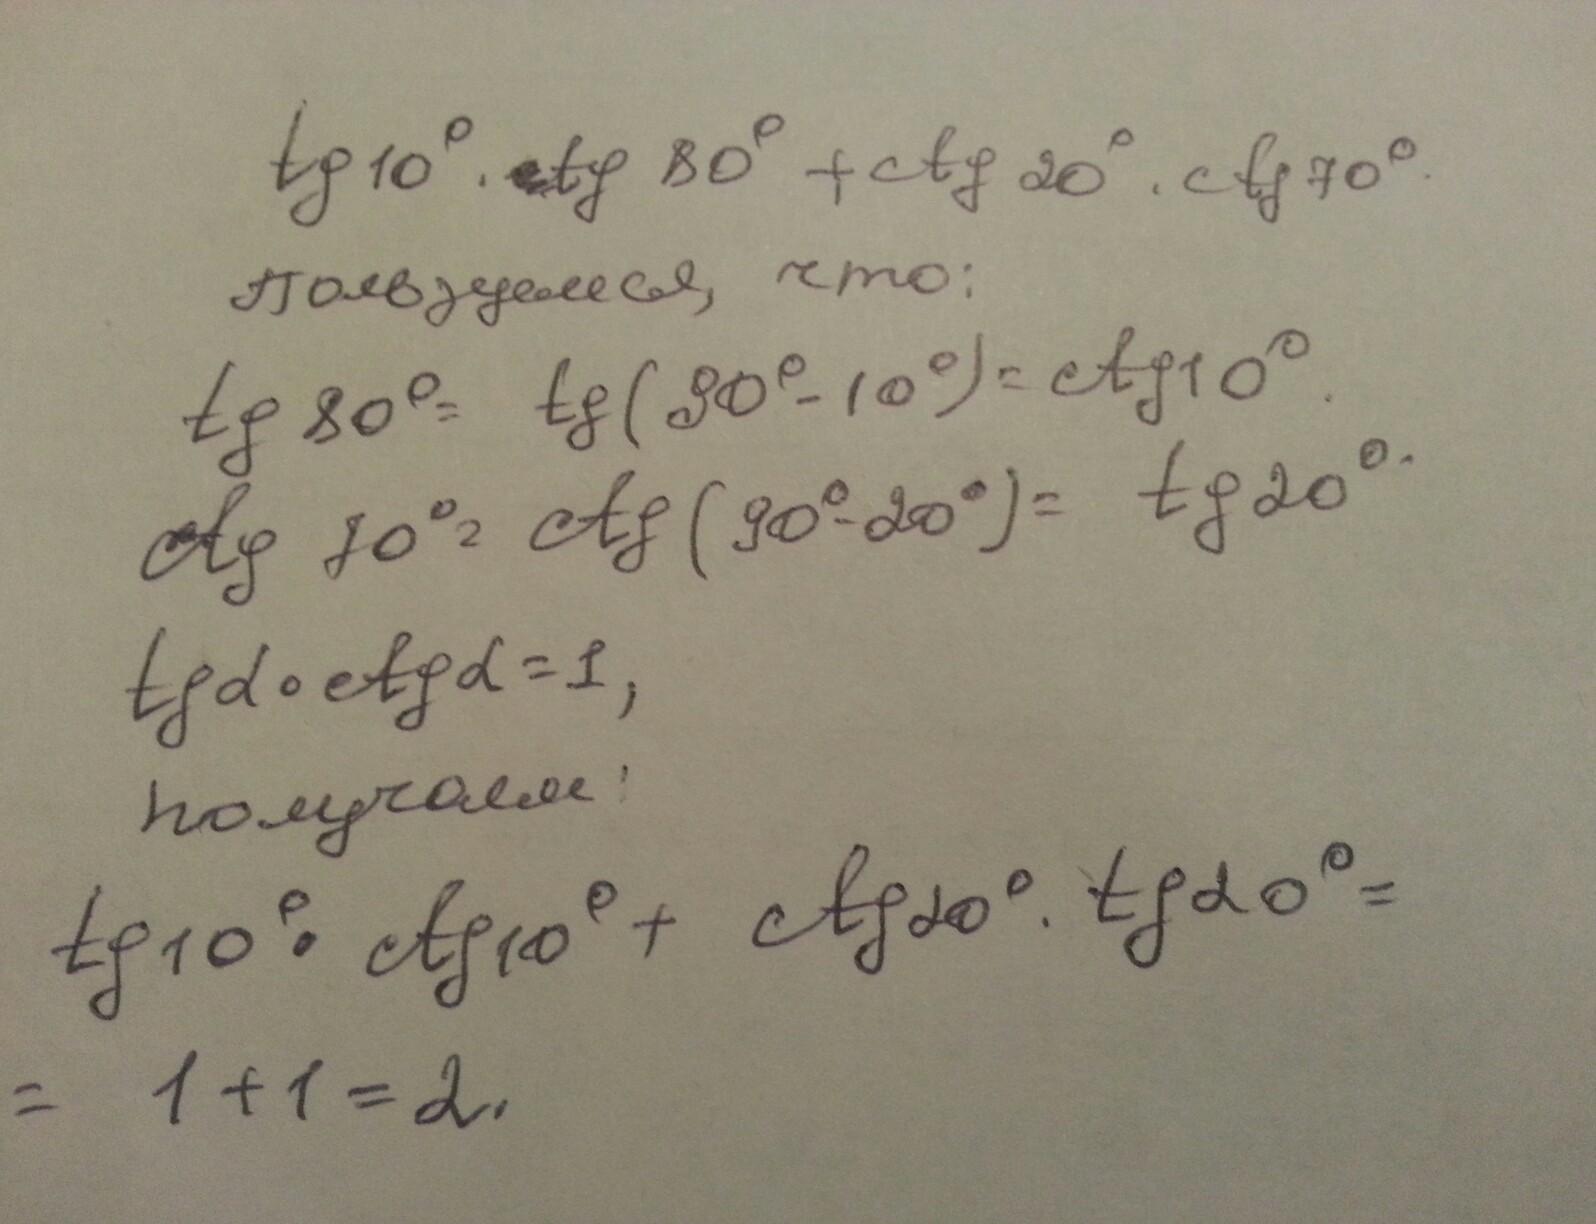 tg 10° · tg 80° + ctg 20° · ctg 70°.
Пользуемся, что:
tg 80° = tg (90° - 10°) = ctg 10°.
ctg 70° = ctg (90° - 20°) = tg 20°.
tg α · ctg α = 1,
получаем:
tg 10° · ctg 10° + ctg 20° · tg 20° =
= 1 + 1 = 2.